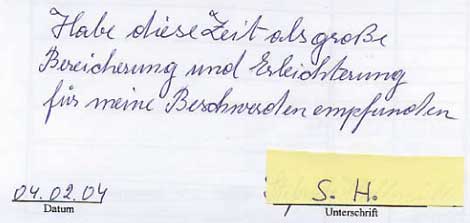 Habe diese Zeit als große
Bereicherung und Erleichterung
für meine Beschwerden empfunden
04.02.04 S. H.
Datum Unterschrift